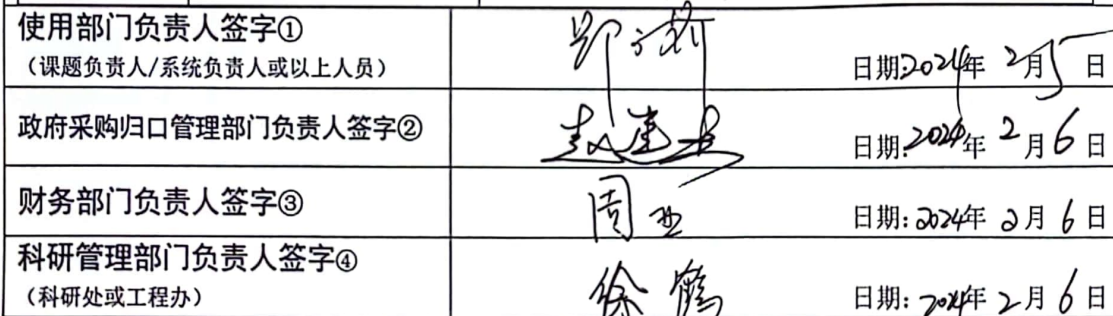 使用部门负责人签字①
（课题负责人/系统负责人或以上人员）
日期:2024年 2月5日
政府采购归口管理部门负责人签字②
赵建
日期:2024年 2月6日
财务部门负责人签字③
周亚
日期:2024年 2月6日
科研管理部门负责人签字④
（科研处或工程办）
徐鹤
日期:2024年 2月6日